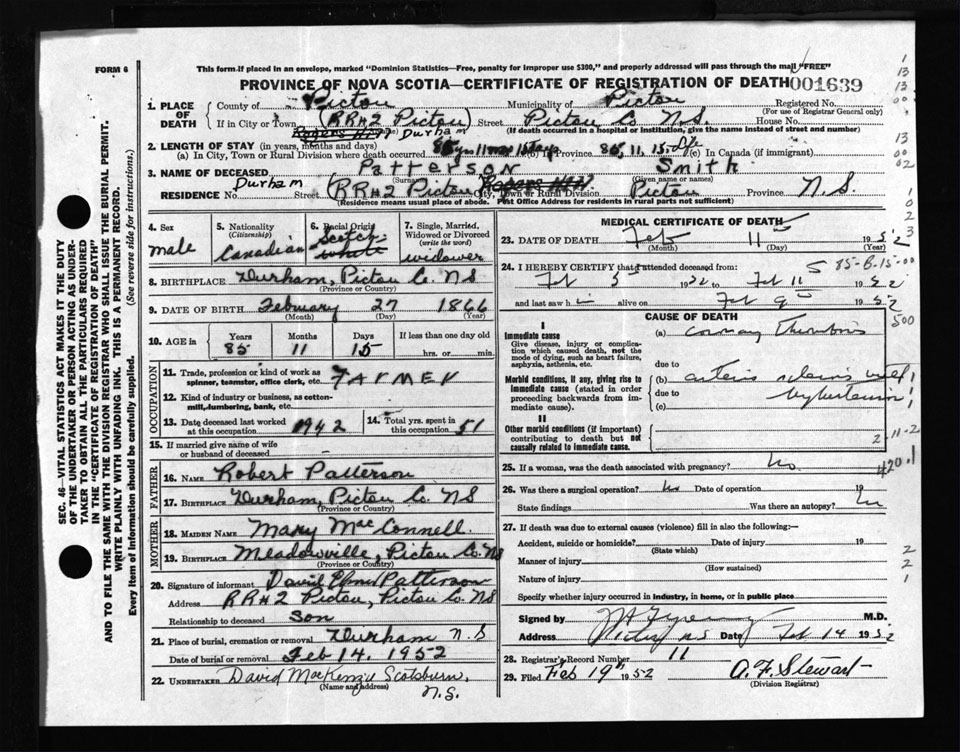 FORM 6
This form if placed in an envelope, marked "Dominion Statistics—Free, penalty for improper use $300," and properly addressed will pass through the mail "FREE"
PROVINCE OF NOVA SCOTIA—CERTIFICATE OF REGISTRATION OF DEATH 001639
1. PLACE OF DEATH County of Pictou Municipality of Pictou Registered No.
(For use of Registrar General only)
If in City or Town (RR#2 Pictou) Street Pictou Co. N.S. House No.
Rogers Hill Durham (If death occurred in a hospital or institution, give the name instead of street and number)
2. LENGTH OF STAY (in years, months and days)
(a) In City, Town or Rural Division where death occurred 85 yrs 11 mos 15 days (b) In Province 85, 11, 15. Life (c) In Canada (if immigrant)
3. NAME OF DECEASED Patterson Smith
(Surname) (Given name or names)
RESIDENCE No. Durham Street (RR#2 Pictou Rogers Hill City, Town or Rural Division Pictou Province N.S.
(Residence means usual place of abode. Post Office Address for residents in rural parts not sufficient)
4. Sex male
5. Nationality (Citizenship) Canadian
6. Racial Origin Scotch white
7. Single, Married, Widowed or Divorced (write the word) widower
8. BIRTHPLACE Durham, Pictou Co. NS
(Province or Country)
9. DATE OF BIRTH February 27 1866
(Month) (Day) (Year)
10. AGE in Years Months Days If less than one day old
85 11 15 hrs. or min.
OCCUPATION
11. Trade, profession or kind of work as spinner, teamster, office clerk, etc. Farmer
12. Kind of industry or business, as cotton-mill, lumbering, bank, etc.
13. Date deceased last worked at this occupation 1942
14. Total yrs. spent in this occupation 51
15. If married give name of wife or husband of deceased
FATHER
16. NAME Robert Patterson
17. BIRTHPLACE Durham, Pictou Co. NS
(Province or Country)
MOTHER
18. MAIDEN NAME Mary MacConnell.
19. BIRTHPLACE Meadowville, Pictou Co. NS
(Province or Country)
20. Signature of informant David Patterson
Address RR#2 Pictou, Pictou Co. NS
Relationship to deceased Son
21. Place of burial, cremation or removal Durham N.S
Date of burial or removal Feb 14. 1952
22. UNDERTAKER David MacKenzie Scotsburn, N.S.
(Name and address)
MEDICAL CERTIFICATE OF DEATH
23. DATE OF DEATH Feb 11 1952
(Month) (Day) (Year)
24. I HEREBY CERTIFY that I attended deceased from:
Feb 5 1952 to Feb 11 1952
and last saw h alive on Feb 9 1952
CAUSE OF DEATH
I
Immediate cause
Give disease, injury or complication which caused death, not the mode of dying, such as heart failure, asphyxia, asthenia, etc.
(a) Coronary Thrombosis
due to
Morbid conditions, if any, giving rise to immediate cause (stated in order proceeding backwards from immediate cause).
(b) arterio sclerosis with
due to
hypertension
(c)
II
Other morbid conditions (if important) contributing to death but not causally related to immediate cause.
2-11-2
420.1
25. If a woman, was the death associated with pregnancy? No
26. Was there a surgical operation? No Date of operation 19
State findings Was there an autopsy? No
27. If death was due to external causes (violence) fill in also the following:—
Accident, suicide or homicide? Date of injury 19
(State which)
Manner of injury
(How sustained)
Nature of injury
Specify whether injury occurred in industry, in home, or in public place
Signed by M.D.
Address Pictou NS Date Feb 14 1952
28. Registrar's Record Number 11
29. Filed Feb 19th 1952 A.F. Stewart
(Division Registrar)
SEC. 46—VITAL STATISTICS ACT MAKES IT THE DUTY
OF THE UNDERTAKER OR PERSON ACTING AS UNDER-
TAKER TO OBTAIN ALL THE PARTICULARS REQUIRED
IN THE "CERTIFICATE OF REGISTRATION OF DEATH"
AND TO FILE THE SAME WITH THE DIVISION REGISTRAR WHO SHALL ISSUE THE BURIAL PERMIT.
WRITE PLAINLY WITH UNFADING INK. THIS IS A PERMANENT RECORD.
Every item of information should be carefully supplied. (See reverse side for instructions.)